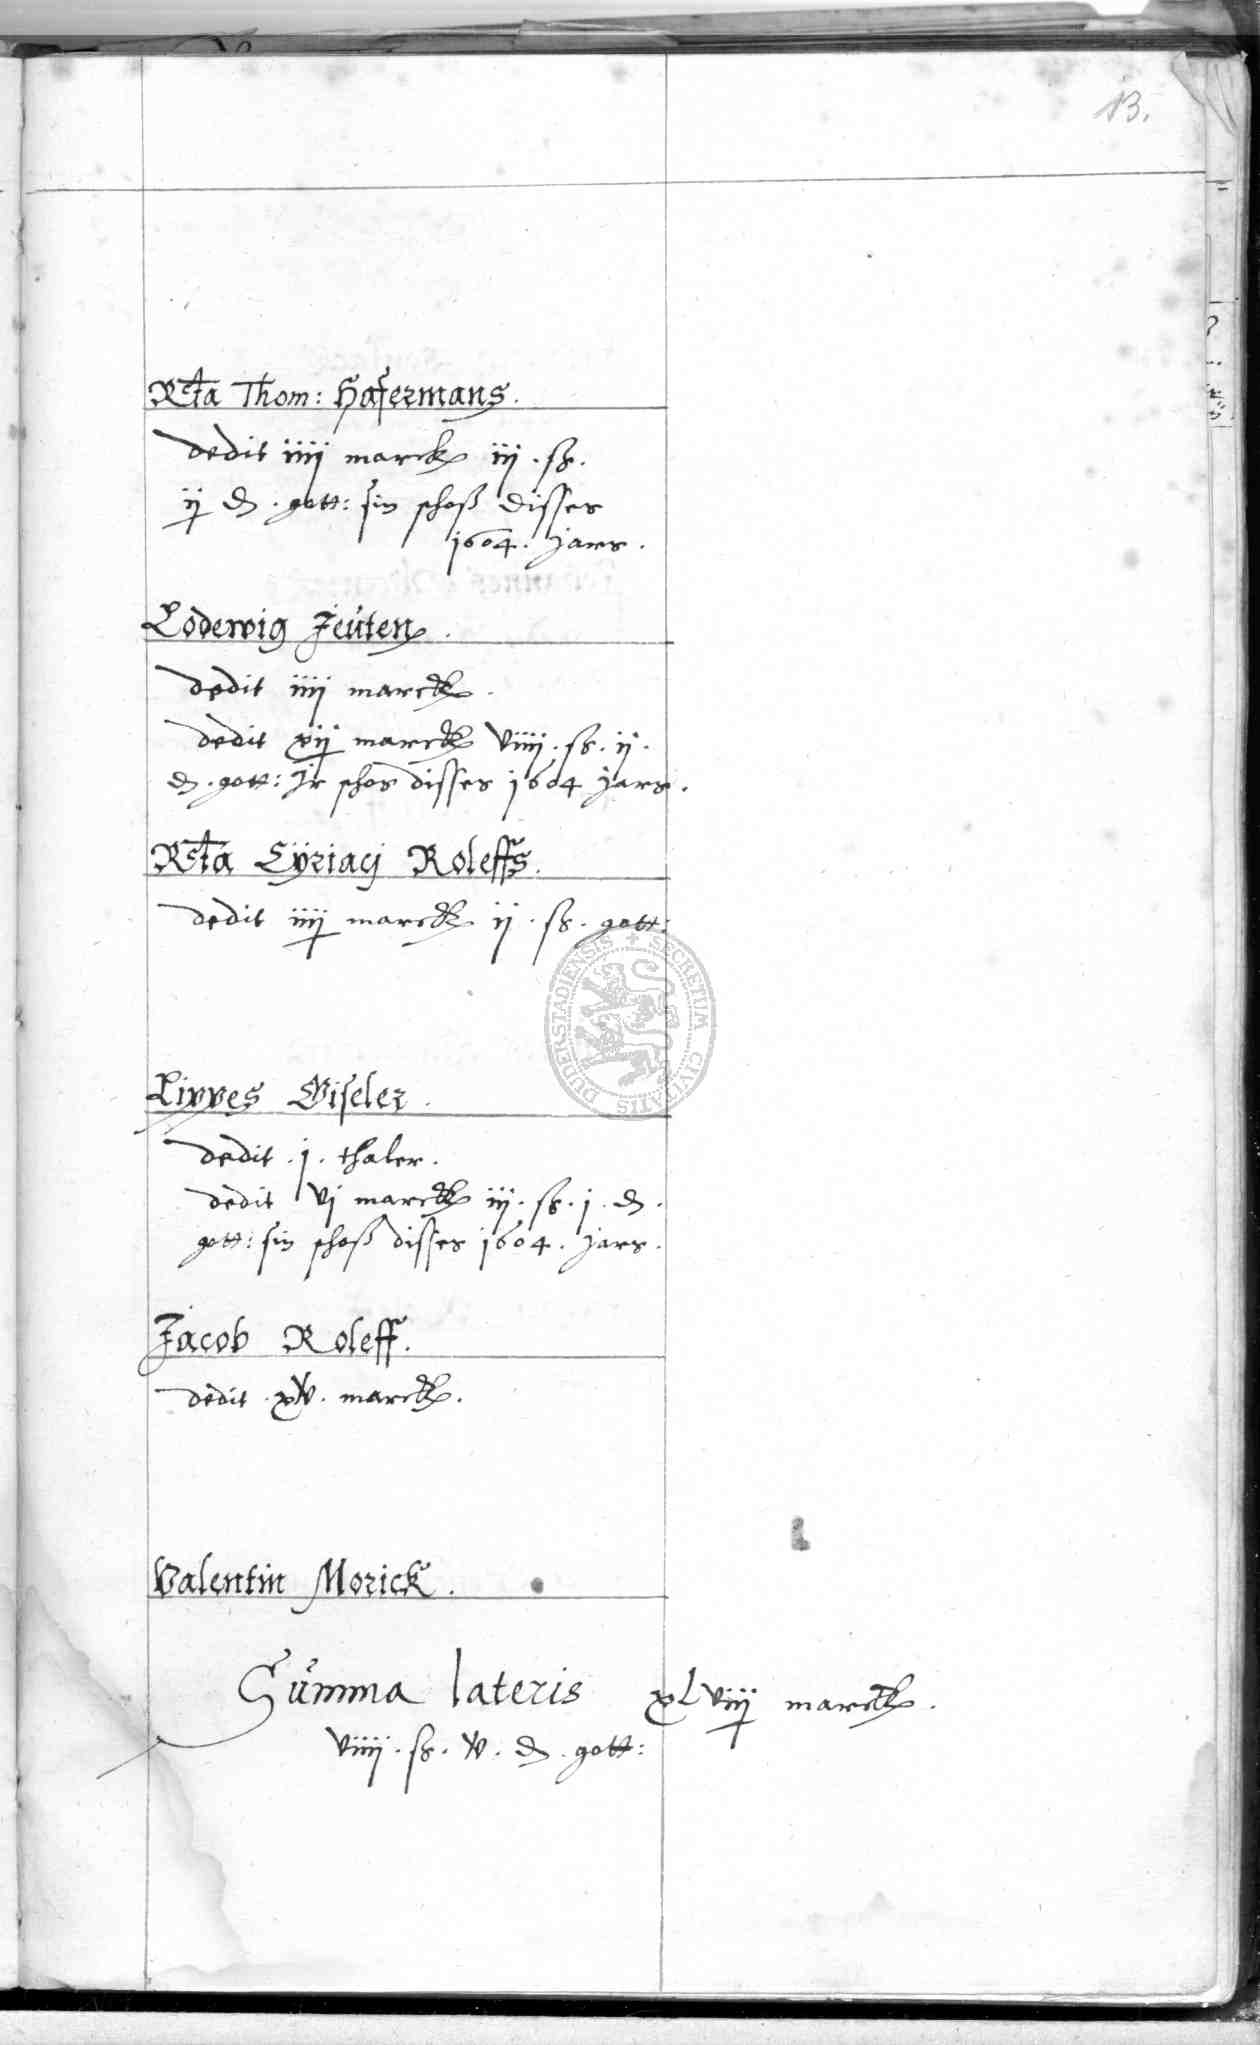 13.
Rcta Thom: Hafermans.
dedit iiij marck iij . ß.
ij ₰ . gott: sin schoß disses
1604. Jars.
Lodewig Jeüten.
dedit iiij marck.
dedit xij marck viiij . ß. ij.
₰ . gott: Jr schos disses 1604 Jars.
Rcta Cÿriacj Roleffs.
dedit iiij marck ij . ß. gott:
DUDERSTADIENSIS + SECRETUM CIVITATIS
Lippes Giseler.
dedit . j . thaler.
dedit vj marck iij . ß . j . ₰ .
gott: sin schoß disses 1604. Jars.
Jacob Roleff.
dedit . xv . marck.
Valentin Morick.
Sümma lateris xLviij marck.
viiij . ß . v . ₰ . gott: